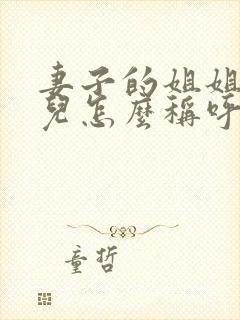 妻子的姐姐
兒怎麼稱呼
童哲